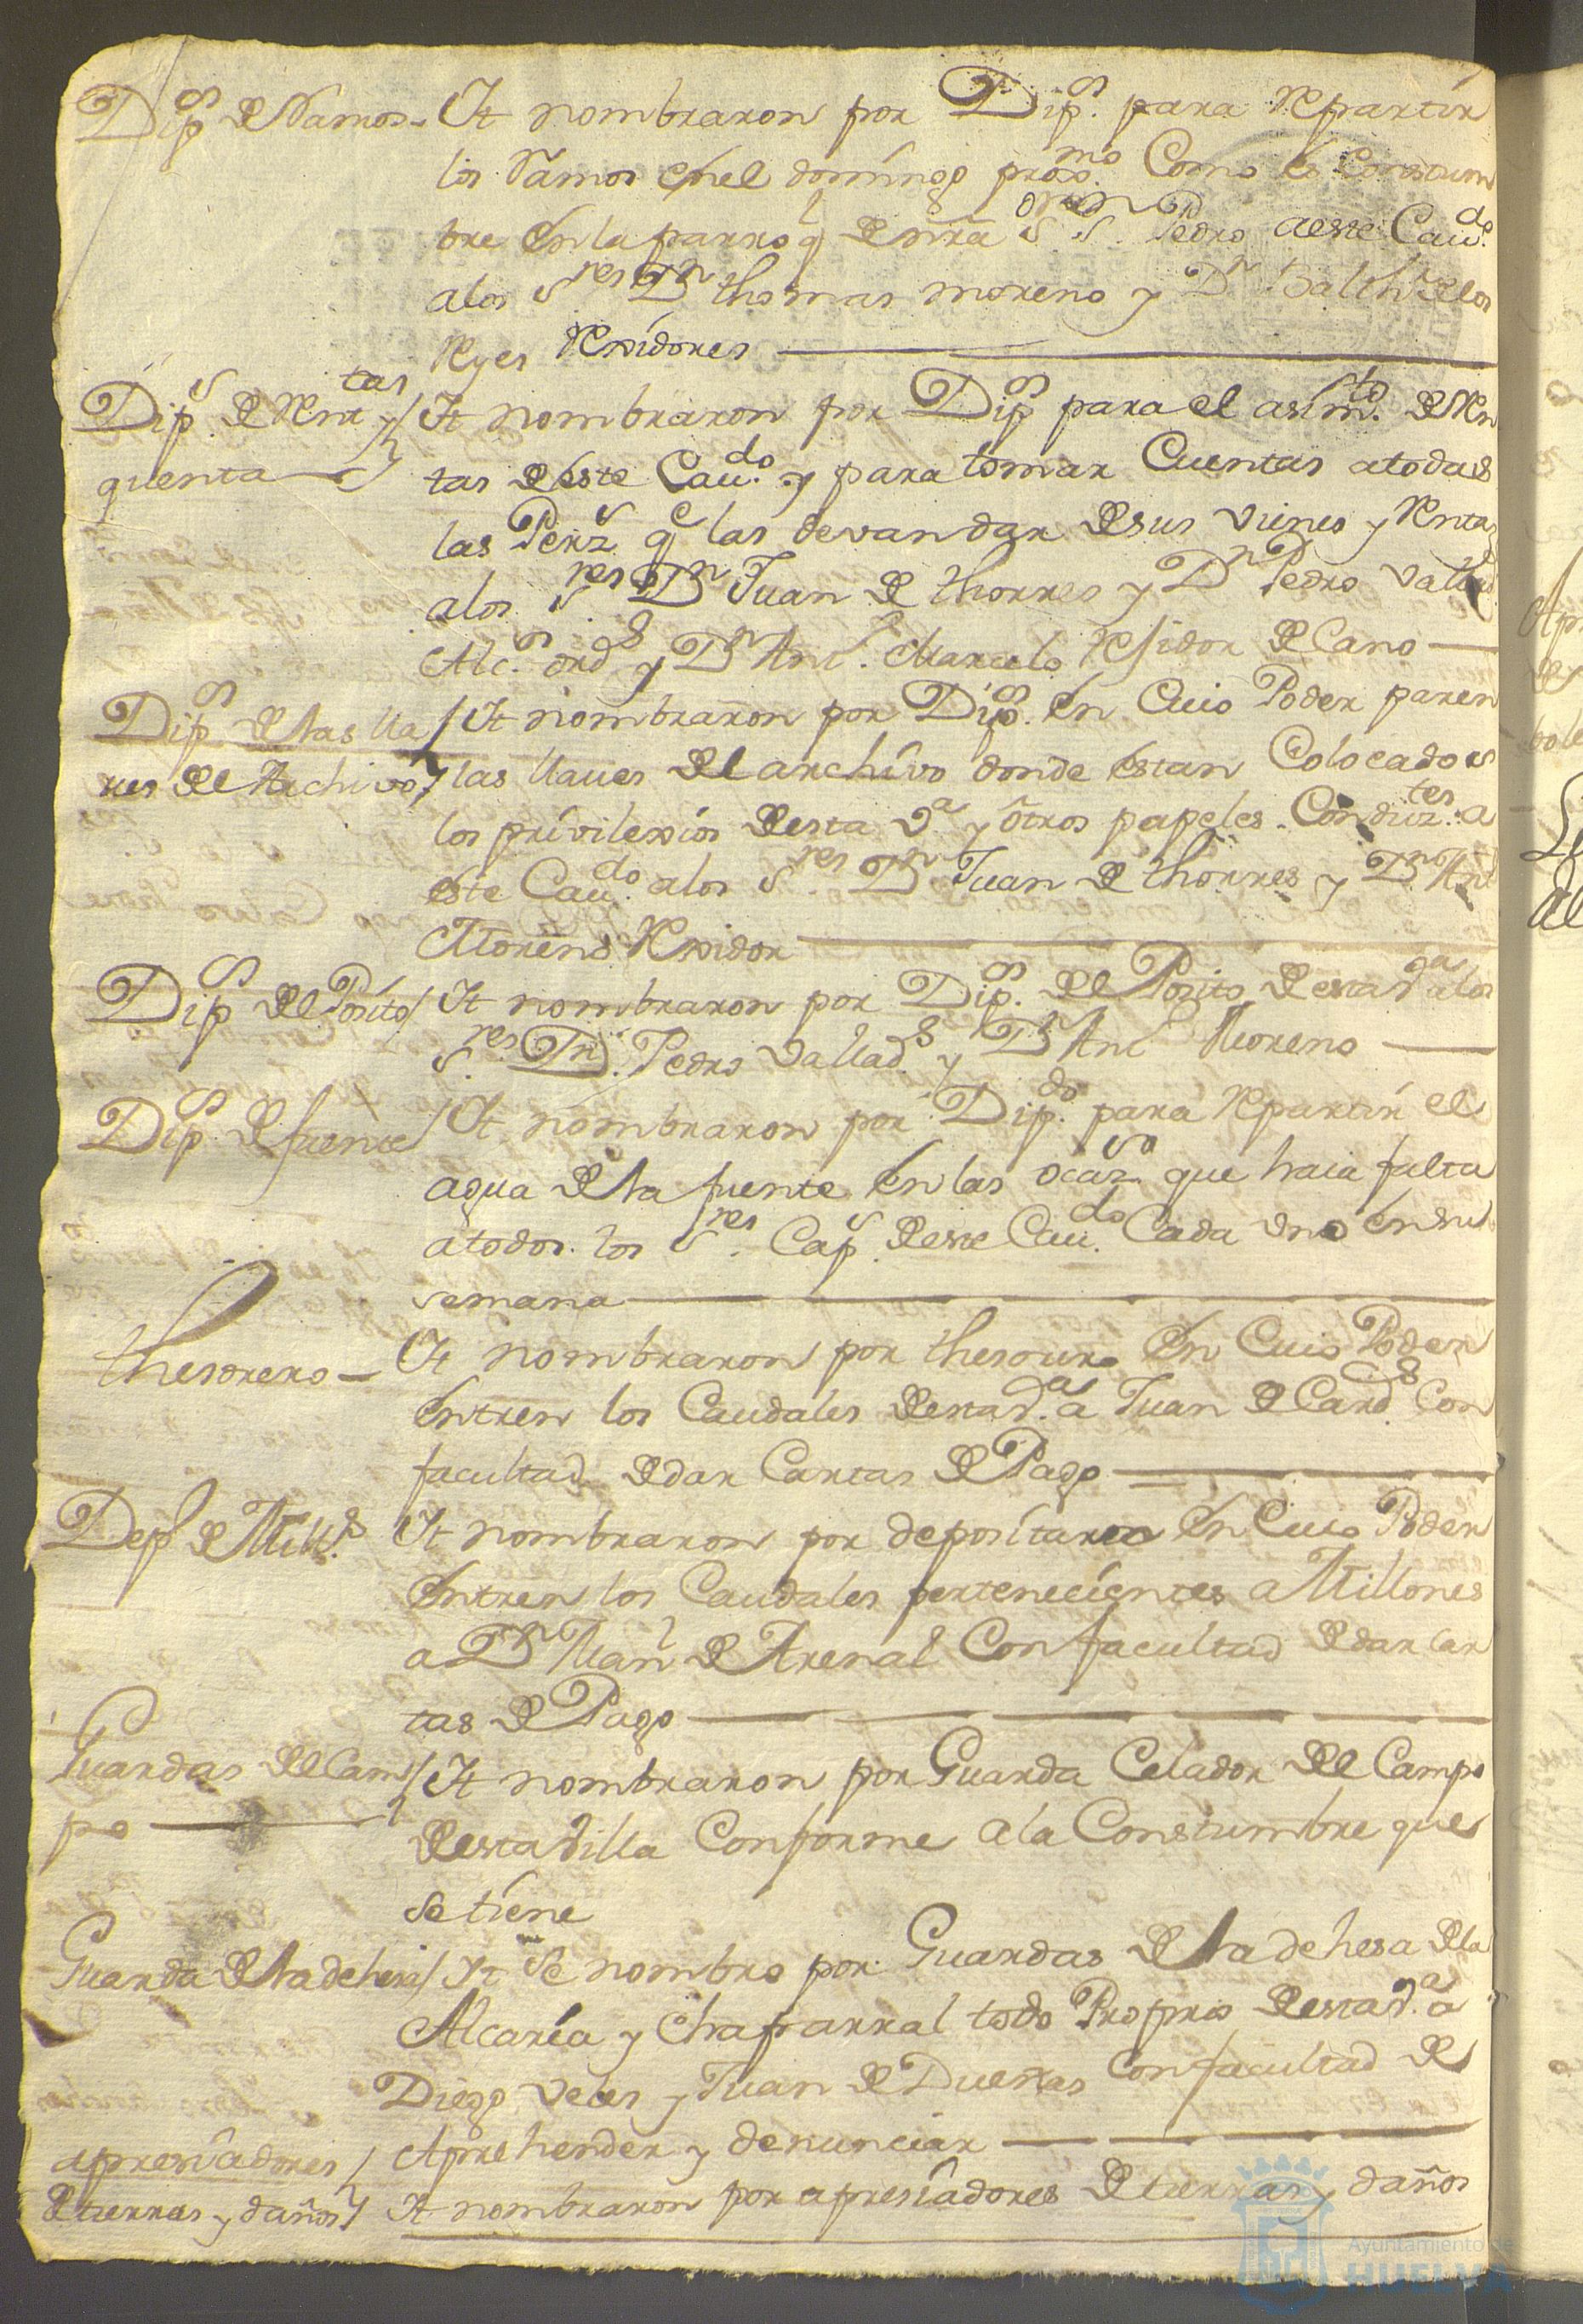 Dip.s de Ramos - It nombraron por Dip.s para Repartir
los Ramos en el domingo prox.mo Como es Constum
bre en la parroq.l de nra S.ra de S. Pedro a este Cau.do
a los S.res D.n thomas moreno y D.n Balth.r de los
Reyes Rexidores
Dip.s de Rentas y / It nombraron por Dip.s para el asim.to de Ren
quenta
tas de este Cau.do y para tomar Cuentas a todas
las Pers.s q.e las devan dar de sus vienes y Rentas
a los S.res D.n Juan de thorres y D.n Pedro Vallad.s
Alc.s ord.s y D.n Ant. Marcelo Residor de Cano
Dip.s de las lla / It nombraron por Dip.s en Cuio Poder paren
ues del Archivo / las llaues del archivo donde estan Colocados
los privilexios de esta V.a y otros papeles Conduz.tes a
este Cau.do a los S.res D.n Juan de thorres y D.n Ant
Moreno Rexidor
Dip.s del Posito / It nombraron por Dip.s del Posito de esta V.a a los
S.res D.n Pedro Vallad.s y D.n Ant Moreno
Dip.s de fuente / It nombraron por Dip.do para Repartir el
agua de la fuente en las ocaz.s que haia falta
a todos los S.res Cap.s de este Cau.do Cada uno en su
semana
thesorero - It nombraron por thesorero en Cuio Poder
entren los Caudales de esta V.a a Juan de Card.s Con
facultad de dar Cartas de Pago
Dep.o de Mill.s It nombraron por depositario en Cuio Poder
entren los Caudales pertenecientes a Millones
a D.n Man.l de Arenal Con facultad de dar Car
tas de Pago
Guardas del Cam / It nombraron por Guarda Celador del Campo
po
de esta Villa Conforme a la Constumbre que
se tiene
Guarda de la dehesa / It se nombro por Guardas de la dehesa de la
Alcaria y Chaparral todo Proprio de esta V.a a
Diego Veles y Juan de Dueñas Con facultad de
Aprehender y denunciar
apresiadores /
de tierras y daños / It nombraron por apresiadores de tierras y daños
Ayuntamiento de
HUELVA